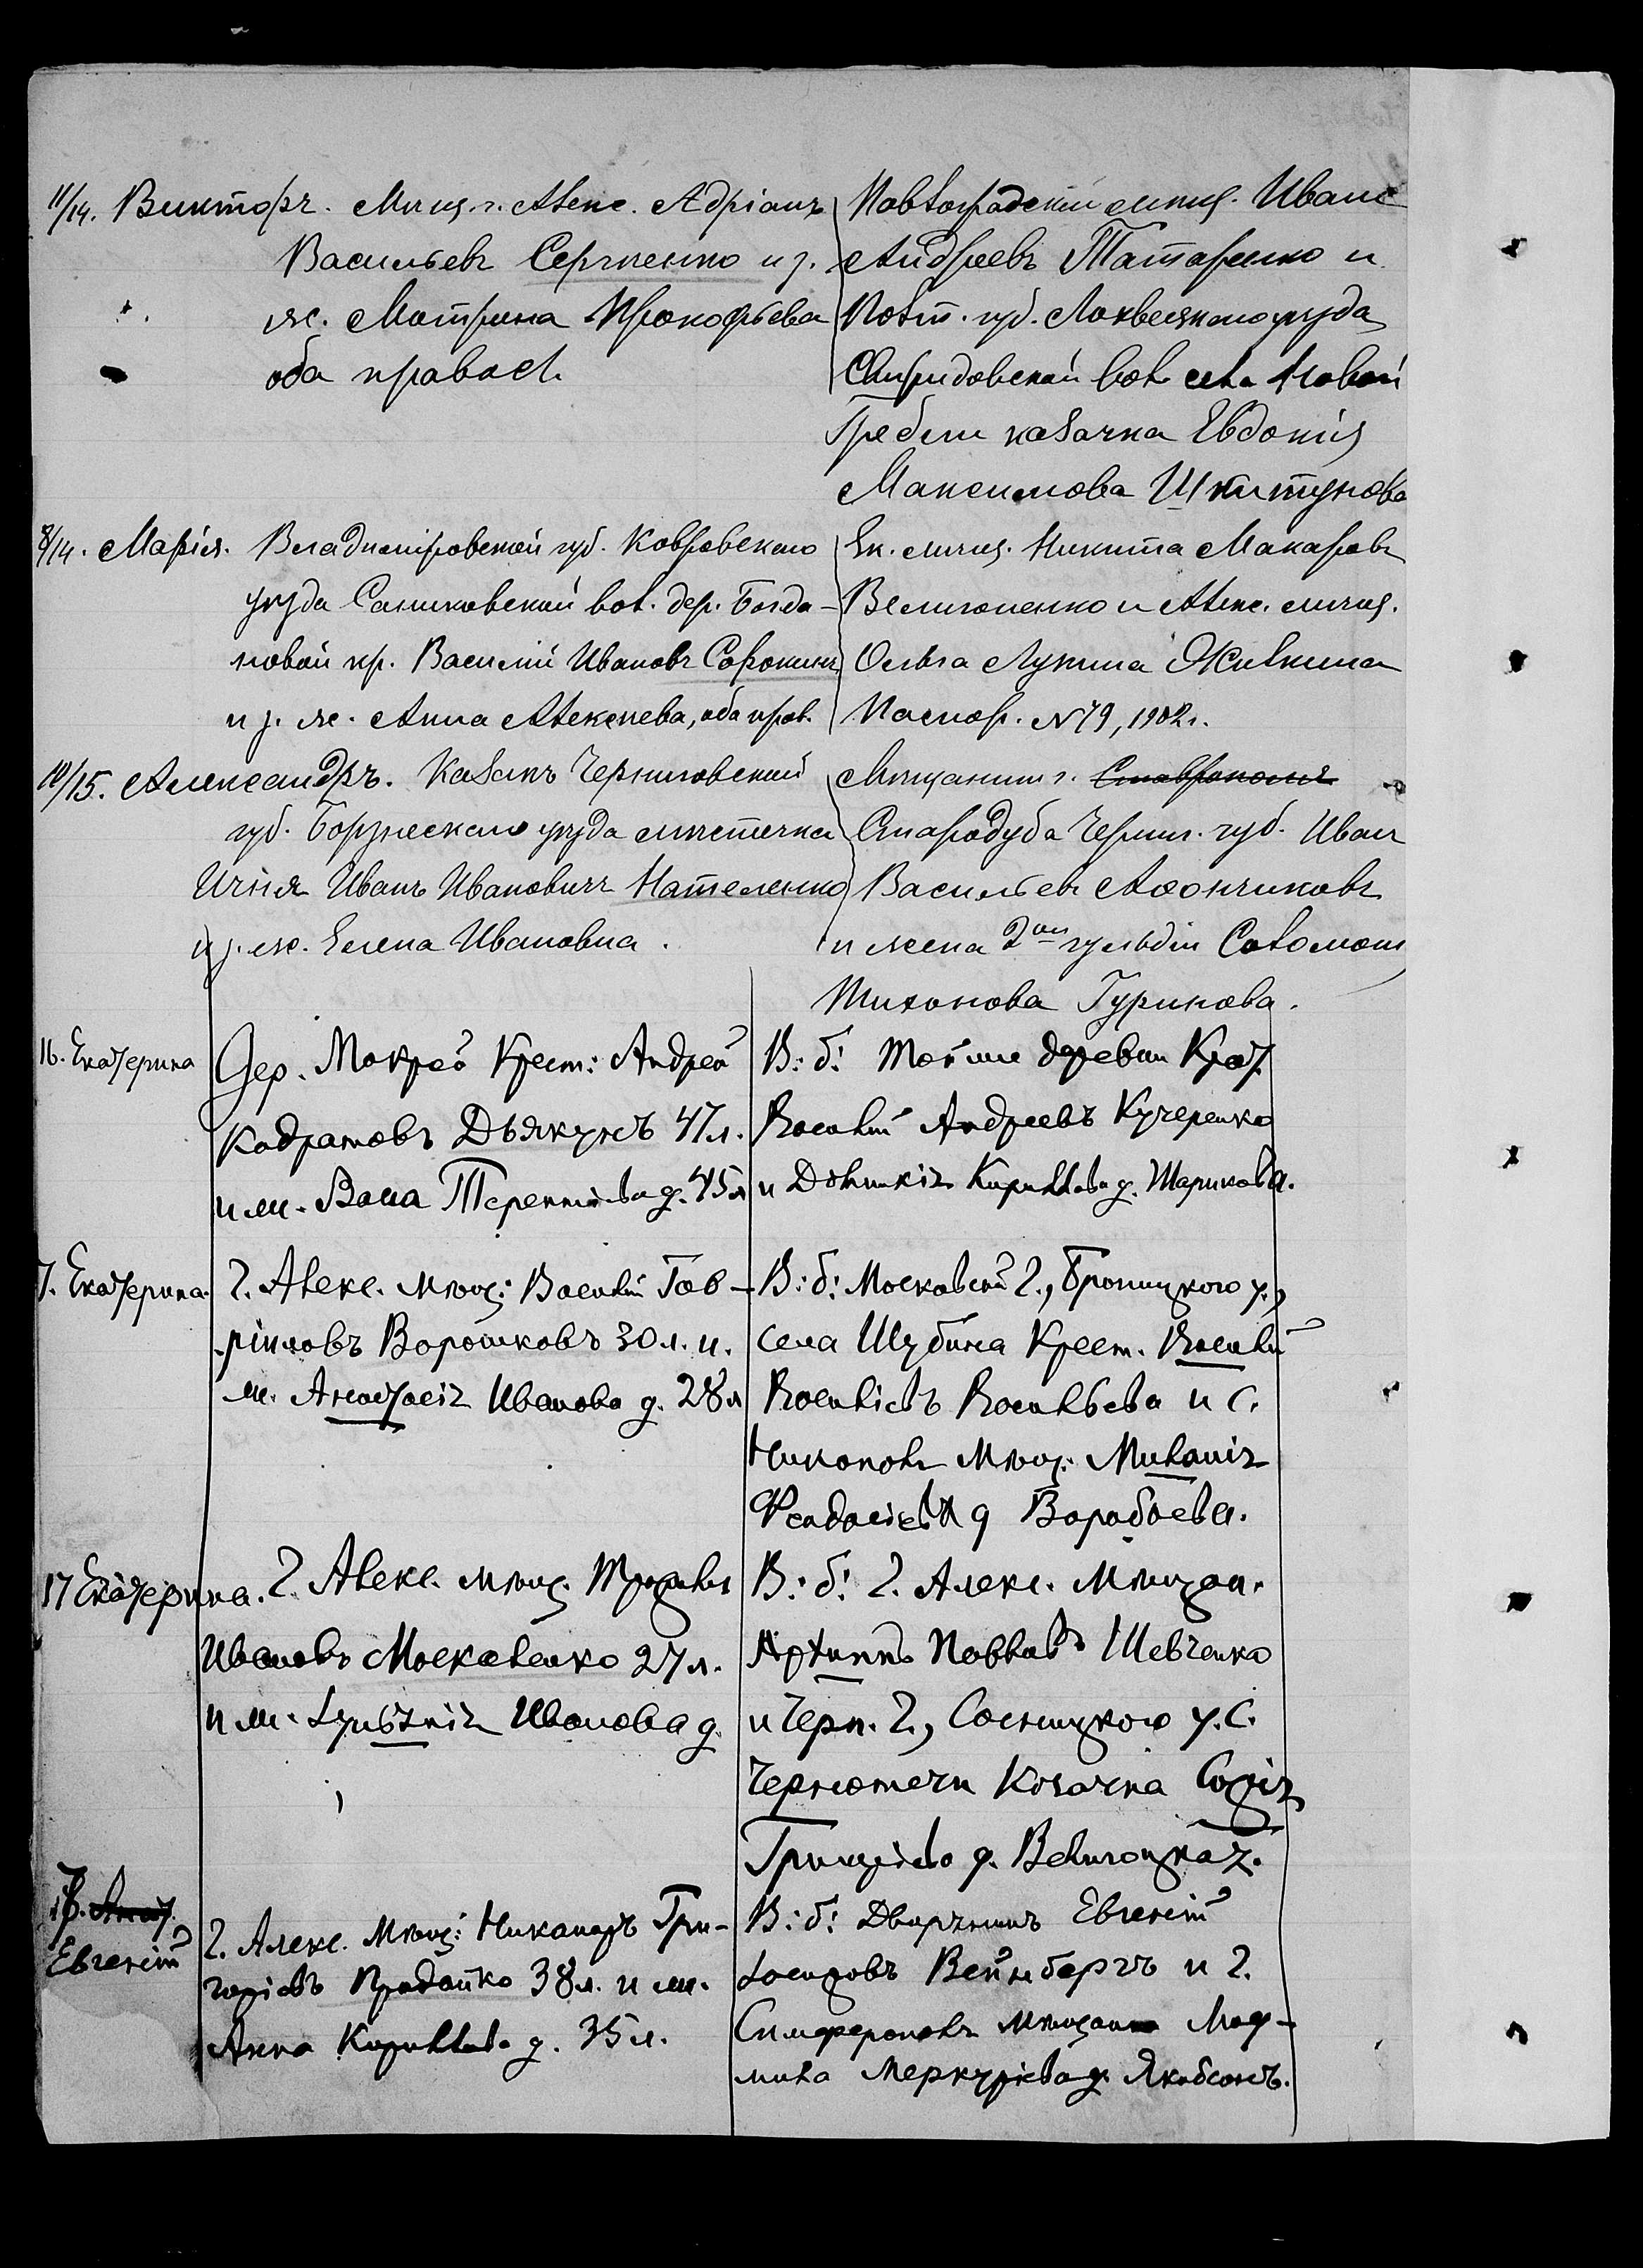 11/14. Викторъ. Мѣщ. г. Алекс. Адріанъ
Васильевъ Сергиенко и з.
ж. Матрена Прокофьева
оба правосл.
Павлоградскій мѣщ. Иванъ
Андреевъ Татаренко и
Полт. губ. Лохвецкаго уѣзда
Свиридовской вол. села Новой
Гребли казачка Евдокія
Максимова
8/14. Марія. Владимировской губ. Ковровскаго
уѣзда Санниковской вол. дер. Богда-
новой кр. Василій Ивановъ Сорокинъ
и з. ж. Анна Алексѣева, оба прав.
Ек. мѣщ. Никита Макаровъ
и Алекс. мѣщ.
Ольга Лукина Живкина
Паспор. № 79, 1902 г.
10/15. Александръ. Казакъ Черниговской
губ. Борзенскаго уѣзда мѣстечка
Ичня Иванъ Ивановичъ Нателенко
и з. ж. Елена Ивановна.
Мѣщанинъ г. Ставрополя
Стародуба Черниг. губ. Иванъ
Васильевъ Афончиковъ
и жена 2ой гульдіи Соломон.
Тихонова Гуринова.
16. Екатерина
Дер. Мокрой Крест: Андрей
Кодратовъ Дьякунъ 47 л.
и ж. Васа Терентіева д. 45 л
В: б: Той же деревни Крест.
Василій Андреевъ Кучеренко
и Домникія Кириллова д. Шарикова.
7. Екатерина.
Г. Алекс. мѣщ: Василій Гав-
ріиловъ Ворошковъ 30 л. и.
ж. Анастасія Иванова д. 28 л
В: б: Московской г., Бронницкого у.,
села Шубина Крест. Василій
Васильевъ и г.
Никополь мѣщ: Миланія
Феодосіева д Воробьева.
17 Екатерина.
Г. Алекс. мѣщ. Трофимъ
Ивановъ Москаленко 27 л.
и ж. Евгенія Иванова д.
В: б: Г. Алекс. Мѣщан.
Павловъ Шевченко
и Черн. г., Сосницкого у. с.
Чернотичи Козачка Софія
Григоріева д. Величцкая.
18. Анаст.
Евгеній
Г. Алекс. Мѣщ: Никаноръ Гри-
горіевъ Придатко 38 л. и ж.
Анна Кириллова д. 35 л.
В: б: Дворянинъ Евгеній
Іосифовъ Вейнбергъ и г.
Симферополь мѣщанка Люд-
мила Меркуріева д. Якобсонъ.